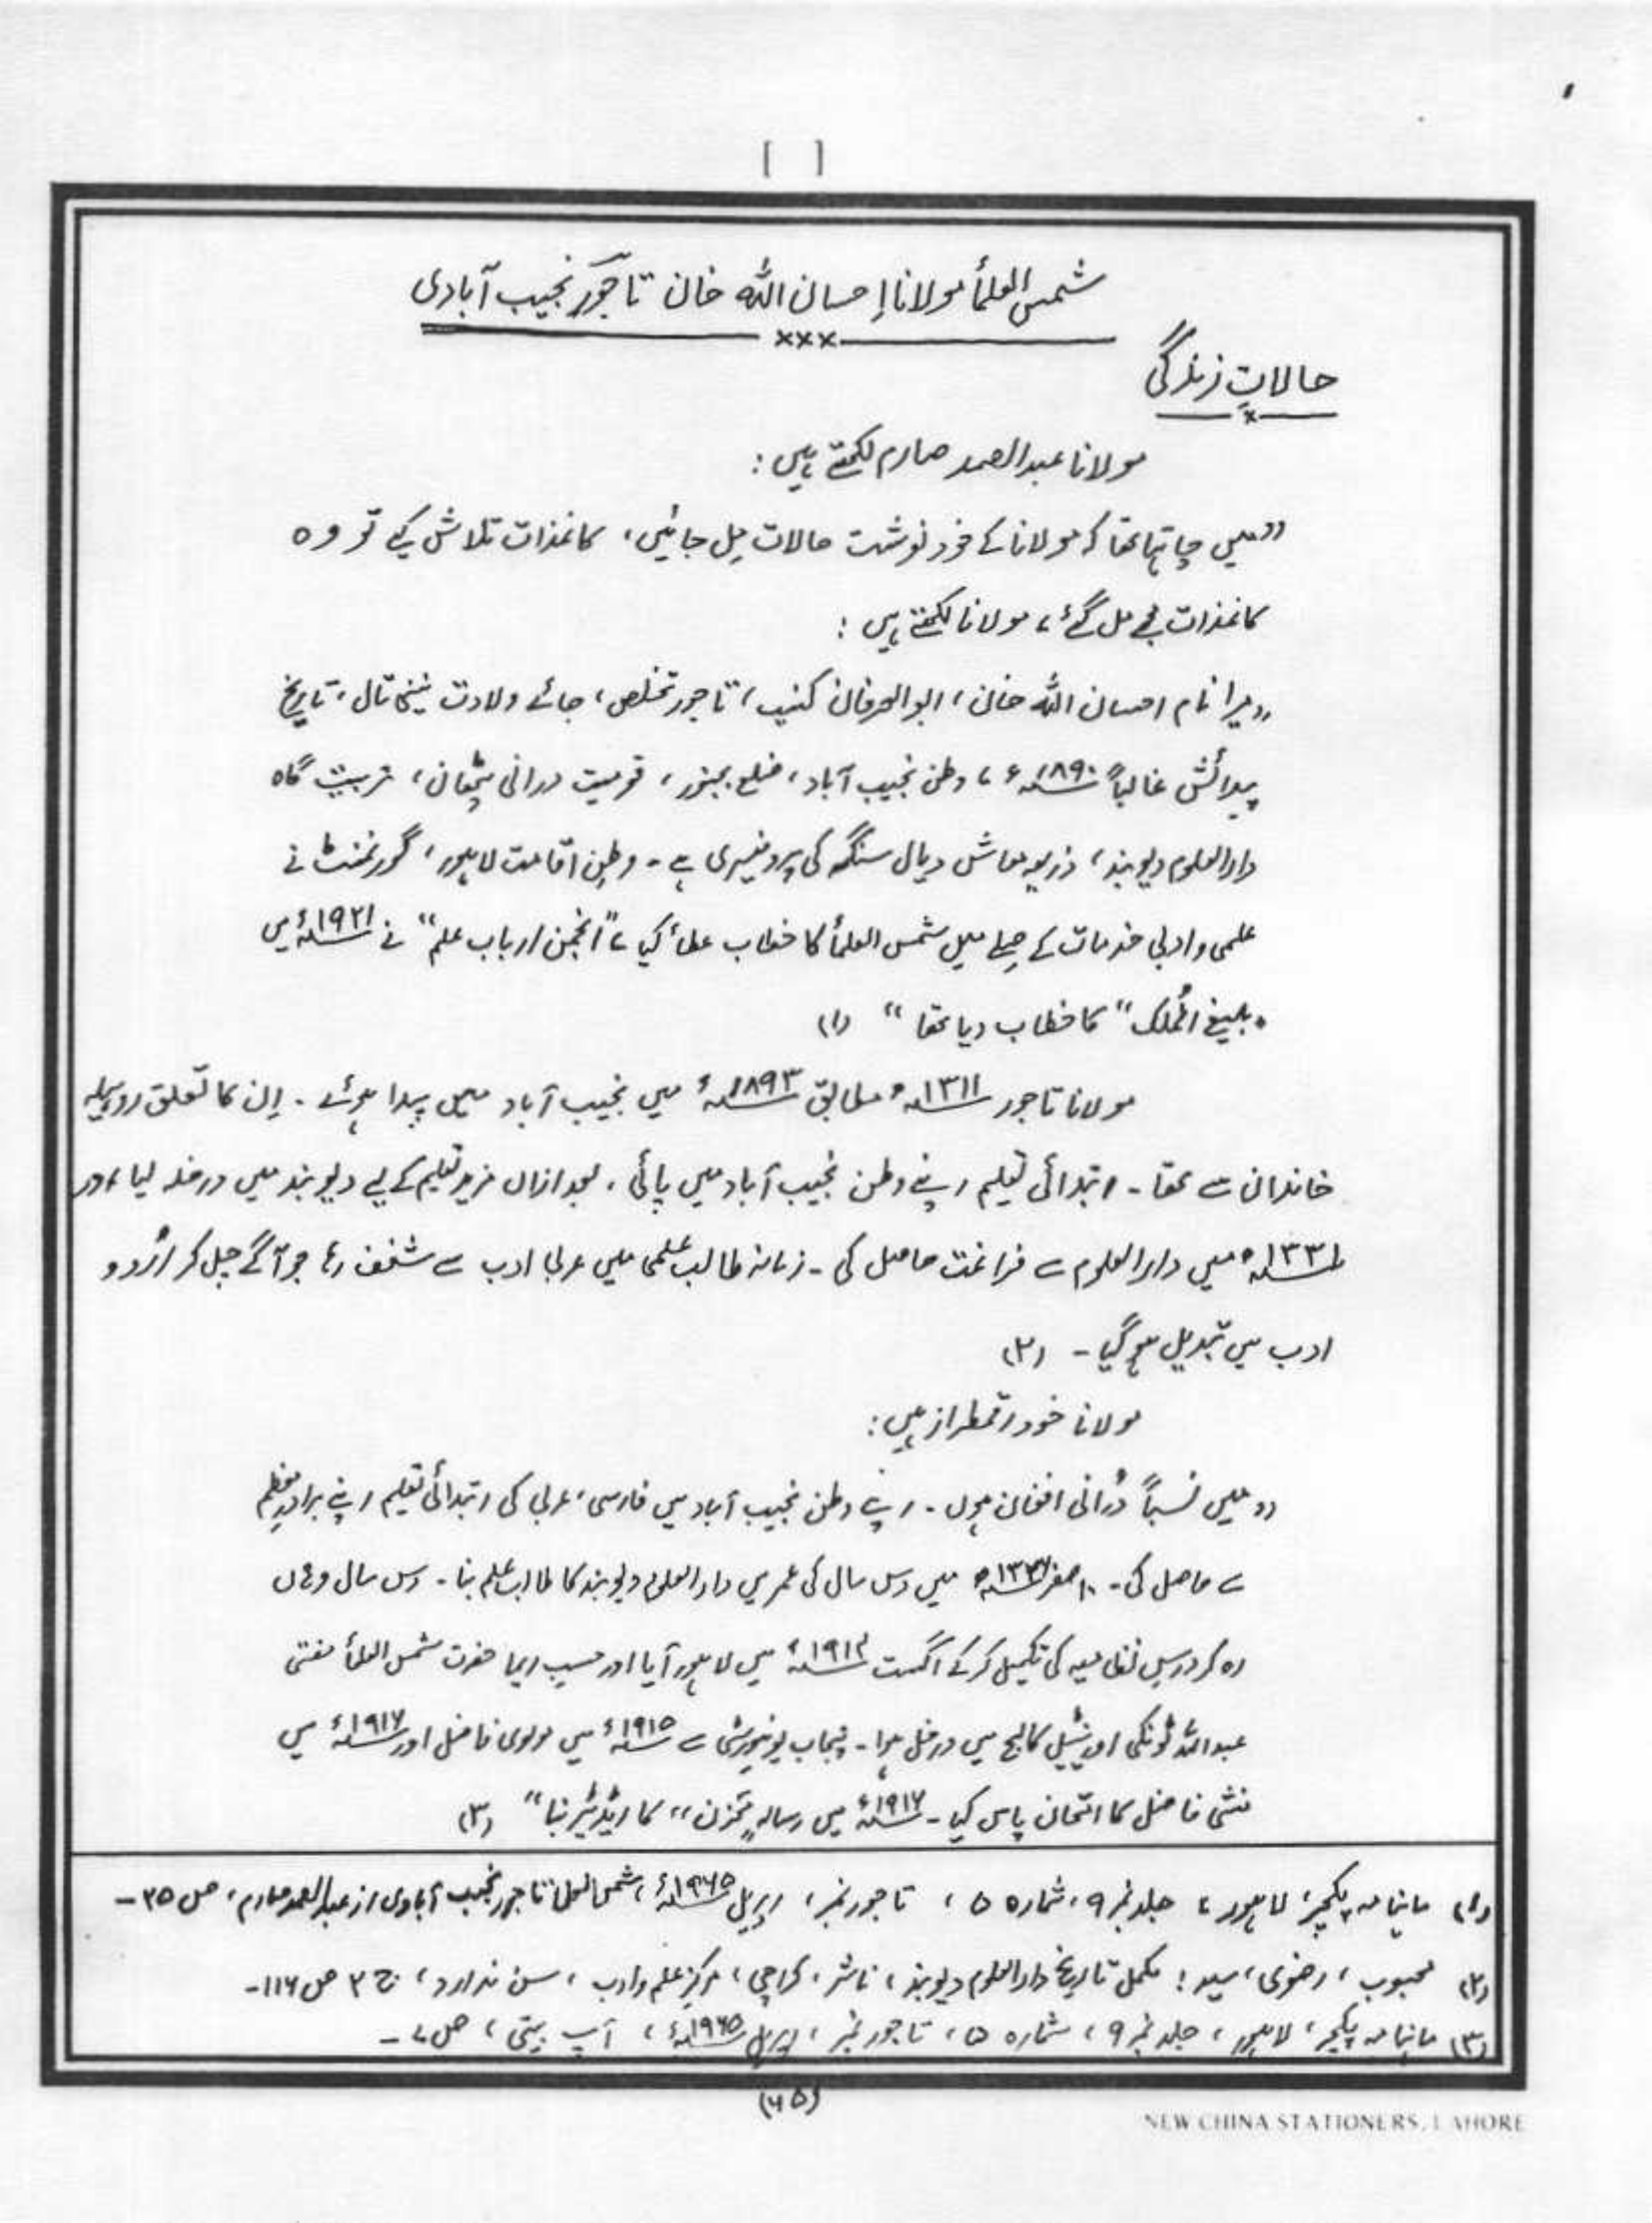 [ ]
شمس العلمأ مولانا إحسان اللہ خان تاجور نجیب آبادی
×××
حالاتِ زندگی
×
مولانا عبدالصمد صارم لکھتے ہیں:
"میں چاہتا تھا کہ مولانا کے خود نوشت حالات مِل جائیں، کاغذات تلاش کیے تو وہ
کاغذات مجھے مل گئے، مولانا لکھتے ہیں:
"میرا نام احسان اللہ خان، ابوالعرفان کنیت، تاجور تخلص، جائے ولادت نینی تال، تاریخ
پیدائش غالباً ۱۸۹۰ء، وطن نجیب آباد، ضلع بجنور، قومیت درانی پٹھان، تربیت گاہ
دارالعلوم دیوبند، ذریعہ معاش دیال سنگھ کی پروفیسری ہے۔ وطنِ اقامت لاہور، گورنمنٹ نے
علمی و ادبی خدمات کے صِلے میں شمس العلمأ کا خطاب عطأ کیا، "انجمن ارباب علم" نے ۱۹۲۱ء میں
"بلیغ المُلک" کا خطاب دیا تھا" (۱)
مولانا تاجور ۱۳۱۱ھ مطابق ۱۸۹۳ء میں نجیب آباد میں پیدا ہوئے۔ اِن کا تعلق روہیلہ
خاندان سے تھا۔ ابتدائی تعلیم اپنے وطن نجیب آباد میں پائی، بعد ازاں مزید تعلیم کے لیے دیوبند میں داخلہ لیا، اور
۱۳۳۱ھ میں دارالعلوم سے فراغت حاصل کی۔ زمانہ طالب علمی میں عربی ادب سے شغف رہا جو آگے چل کر اُردو
ادب میں تبدیل ہو گیا۔ (۲)
مولانا خود رقمطراز ہیں:
"میں نسباً دُرانی افغان ہوں۔ اپنے وطن نجیب آباد میں فارسی، عربی کی ابتدائی تعلیم اپنے برادرِ معظم
سے حاصل کی۔ ۱۰ صفر میں دس سال کی عمر میں دارالعلوم دیوبند کا طالب علم بنا۔ دس سال وہاں
رہ کر درسِ نظامیہ کی تکمیل کر کے اگست ۱۹۱۴ء میں لاہور آیا اور حسبِ ایما حضرت شمس العلمأ مفتی
عبداللہ ٹونکی اورینٹیل کالج میں داخل ہوا۔ پنجاب یونیورسٹی سے ۱۹۱۵ء میں مولوی فاضل اور ۱۹۱۶ء میں
منشی فاضل کا امتحان پاس کیا۔ ۱۹۱۶ء میں رسالہ "مخزن" کا ایڈیٹر بنا" (۳)
(۱) ماہنامہ پکچر، لاہور، جلد نمبر ۹، شمارہ ۵، تاجور نمبر، اپریل ۱۹۶۵ء، شمس العلمأ تاجور نجیب آبادی از عبدالصمد صارم، ص ۲۵۔
(۲) محبوب، رضوی، سید؛ مکمل تاریخ دارالعلوم دیوبند، ناشر، کراچی، مرکزِ علم و ادب، سن ندارد، ج ۲ ص ۱۱۶۔
(۳) ماہنامہ پکچر، لاہور، جلد نمبر ۹، شمارہ ۵، تاجور نمبر، اپریل ۱۹۶۵ء، آپ بیتی، ص ۷۔
(۶۵)
NEW CHINA STATIONERS, LAHORE